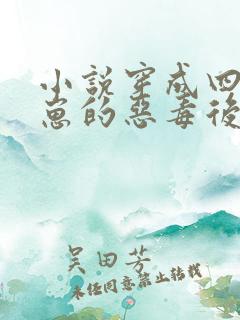 小說穿成四
崽的惡毒後
吴田芳
未經同意禁止轉載